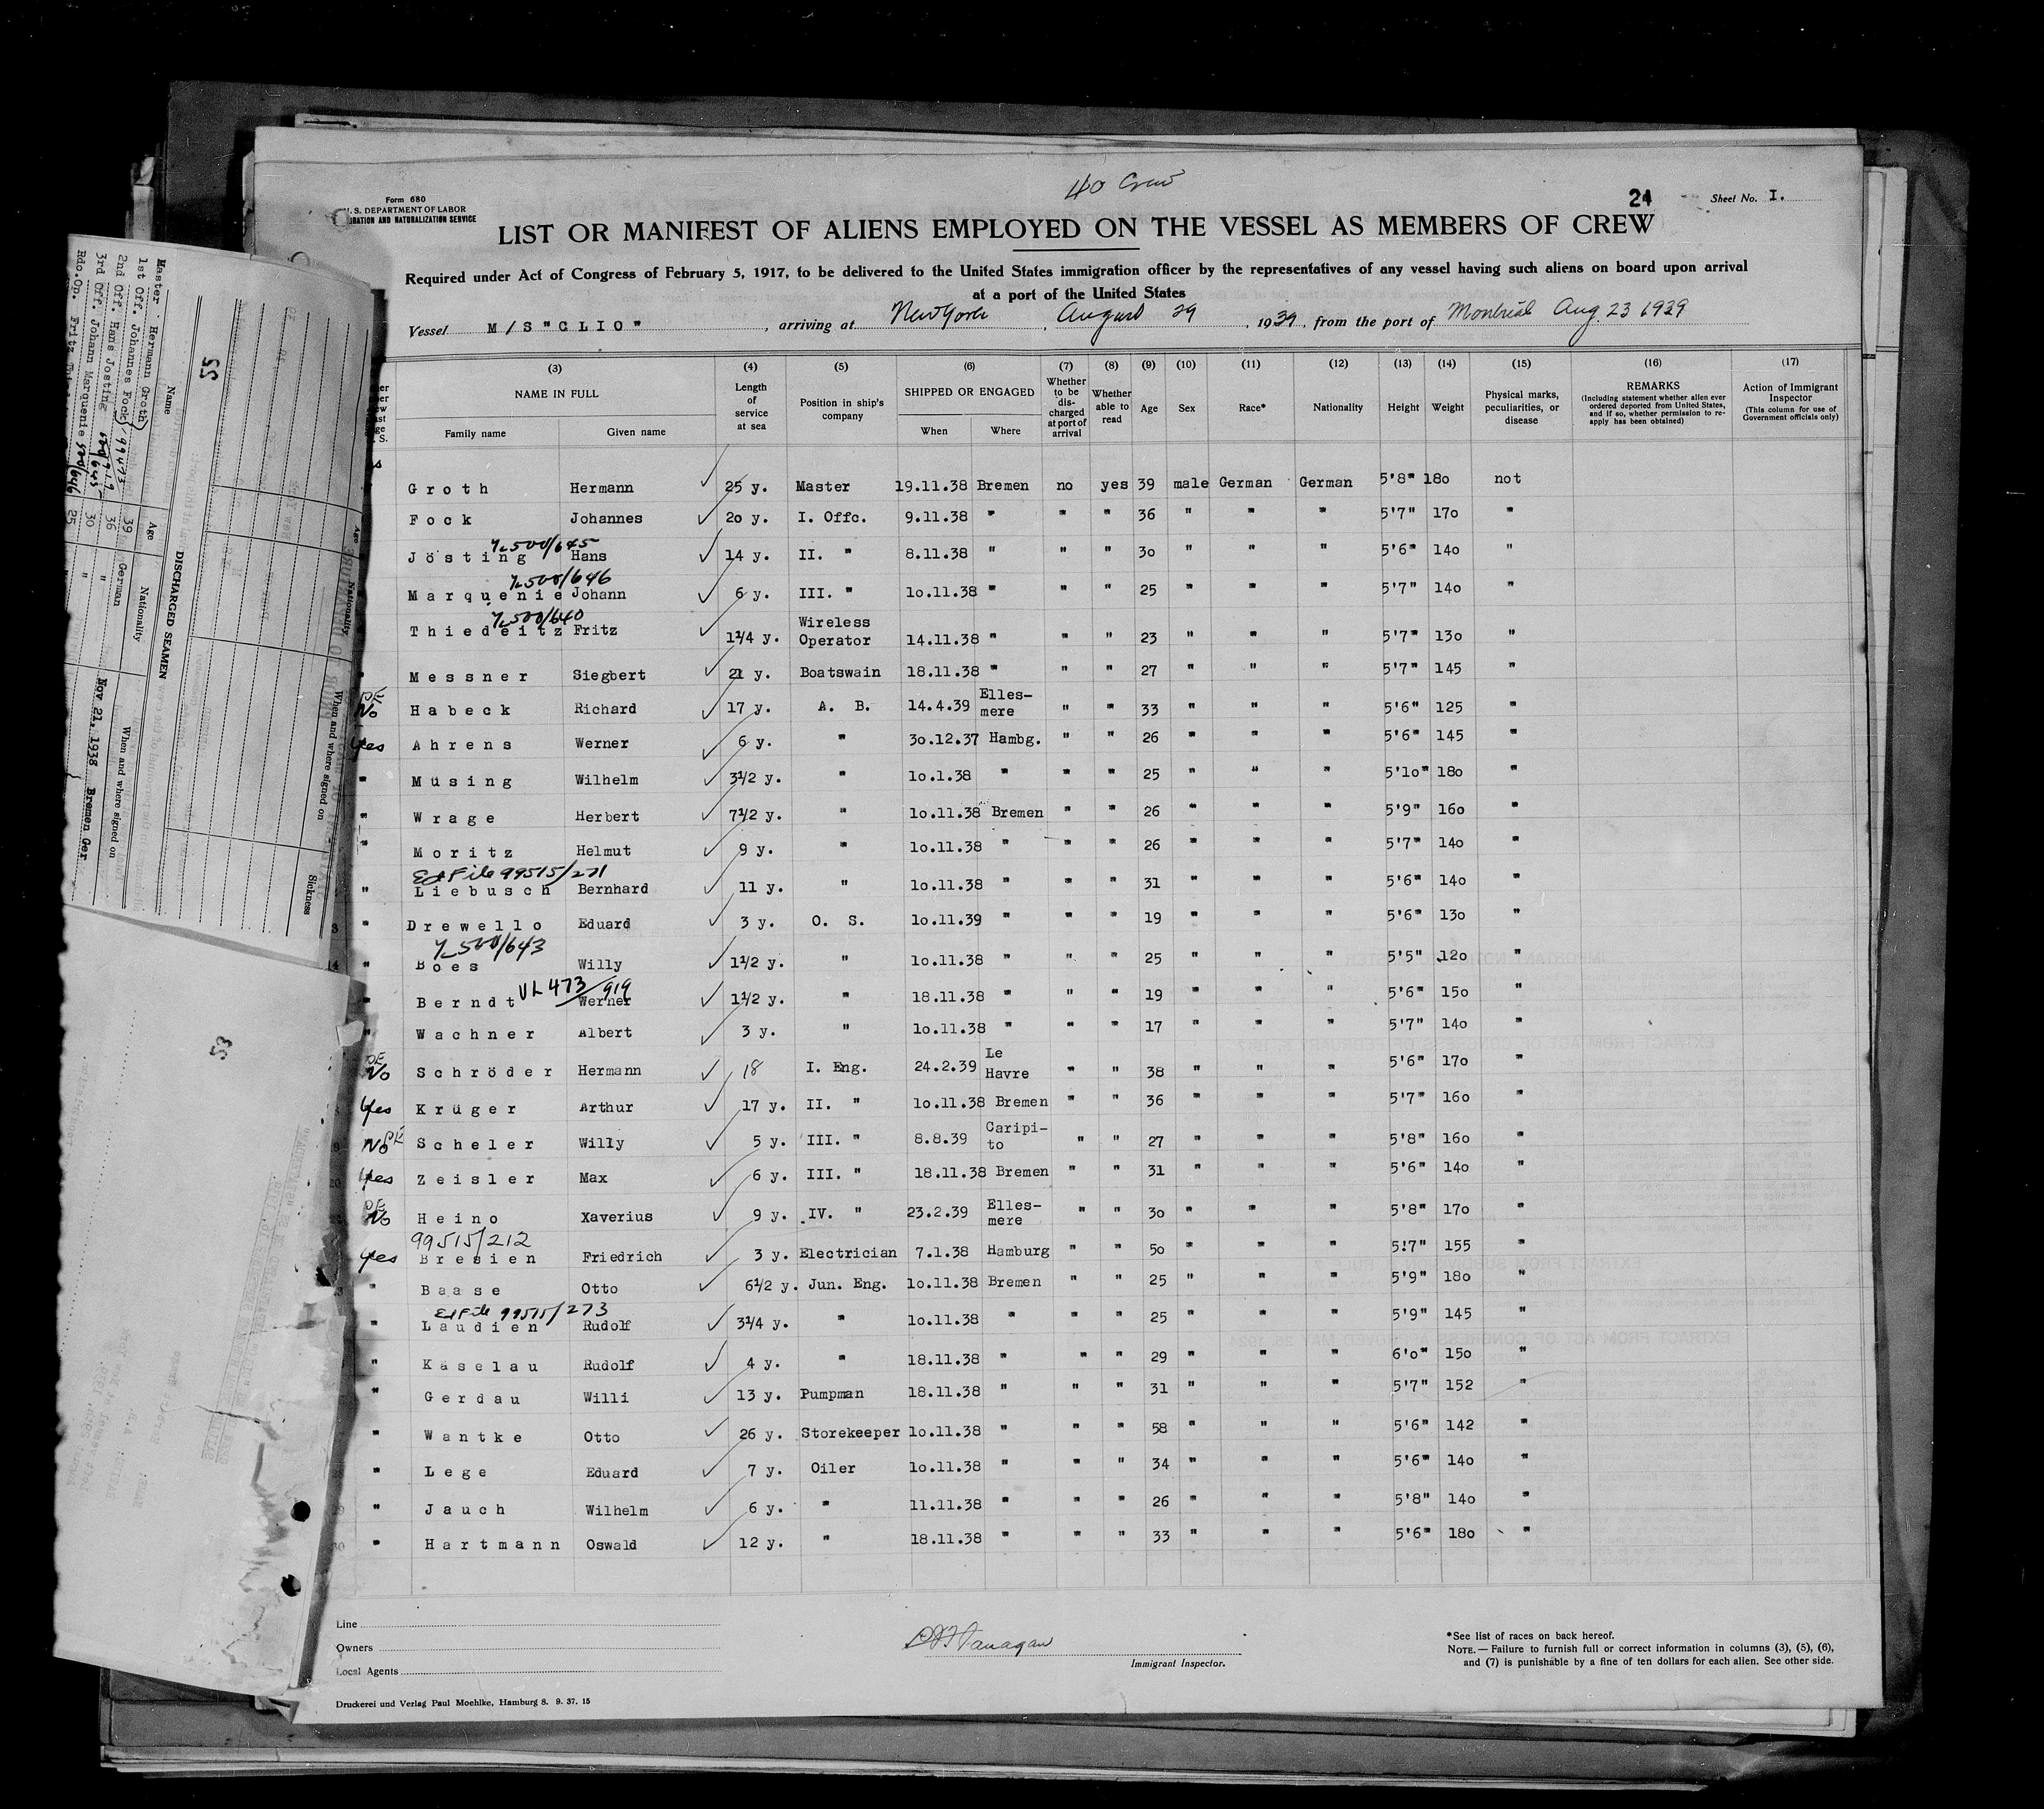 40 Crew
Form 680
U. S. DEPARTMENT OF LABOR
IMMIGRATION AND NATURALIZATION SERVICE
24 Sheet No. I.
LIST OR MANIFEST OF ALIENS EMPLOYED ON THE VESSEL AS MEMBERS OF CREW
Required under Act of Congress of February 5, 1917, to be delivered to the United States immigration officer by the representatives of any vessel having such aliens on board upon arrival
at a port of the United States
Vessel M/S "CLIO", arriving at New York, August 29, 1939, from the port of Montreal Aug. 23 1939
(3) (4) (5) (6) (7) (8) (9) (10) (11) (12) (13) (14) (15) (16) (17)
NAME IN FULL Family name Given name
Length of service at sea
Position in ship's company
SHIPPED OR ENGAGED When Where
Whether to be discharged at port of arrival
Whether able to read
Age Sex Race* Nationality Height Weight
Physical marks, peculiarities, or disease
REMARKS
(Including statement whether alien ever ordered deported from United States, and if so, whether permission to re-apply has been obtained)
Action of Immigrant Inspector
(This column for use of Government officials only)
Groth Hermann 25 y. Master 19.11.38 Bremen no yes 39 male German German 5'8" 180 not
Fock Johannes 20 y. I. Offc. 9.11.38 " " " 36 " " " 5'7" 170 "
500/645
Jösting Hans 14 y. II. " 8.11.38 " " " 30 " " " 5'6" 140 "
500/646
Marquenie Johann 6 y. III. " 10.11.38 " " " 25 " " " 5'7" 140 "
500/640
Thiedeitz Fritz 1 1/4 y. Wireless Operator 14.11.38 " " " 23 " " " 5'7" 130 "
" Messner Siegbert 21 y. Boatswain 18.11.38 " " " 27 " " " 5'7" 145 "
PE No Habeck Richard 17 y. A. B. 14.4.39 Ellesmere " " 33 " " " 5'6" 125 "
Yes Ahrens Werner 6 y. " 30.12.37 Hambg. " " 26 " " " 5'6" 145 "
" Müsing Wilhelm 3 1/2 y. " 10.1.38 " " " 25 " " " 5'10" 180 "
" Wrage Herbert 7 1/2 y. " 10.11.38 Bremen " " 26 " " " 5'9" 160 "
" Moritz Helmut 9 y. " 10.11.38 " " " 26 " " " 5'7" 140 "
File 99515/271
" Liebusch Bernhard 11 y. " 10.11.38 " " " 31 " " " 5'6" 140 "
" Drewello Eduard 3 y. O. S. 10.11.39 " " " 19 " " " 5'6" 130 "
500/643
14 " Boes Willy 1 1/2 y. " 10.11.38 " " " 25 " " " 5'5" 120 "
VL 473/919
" Berndt Werner 1 1/2 y. " 18.11.38 " " " 19 " " " 5'6" 150 "
" Wachner Albert 3 y. " 10.11.38 " " " 17 " " " 5'7" 140 "
PE No Schröder Hermann 18 I. Eng. 24.2.39 Le Havre " " 38 " " " 5'6" 170 "
Yes Krüger Arthur 17 y. II. " 10.11.38 Bremen " " 36 " " " 5'7" 160 "
No PE Scheler Willy 5 y. III. " 8.8.39 Caripito " " 27 " " " 5'8" 160 "
Yes Zeisler Max 6 y. III. " 18.11.38 Bremen " " 31 " " " 5'6" 140 "
PE No Heino Xaverius 9 y. IV. " 23.2.39 Ellesmere " " 30 " " " 5'8" 170 "
99515/212
Yes Bresien Friedrich 3 y. Electrician 7.1.38 Hamburg " " 50 " " " 5'7" 155 "
" Baase Otto 6 1/2 y. Jun. Eng. 10.11.38 Bremen " " 25 " " " 5'9" 180 "
File 99515/273
" Laudien Rudolf 3 1/4 y. " 10.11.38 " " " 25 " " " 5'9" 145 "
" Käselau Rudolf 4 y. " 18.11.38 " " " 29 " " " 6'0" 150 "
" Gerdau Willi 13 y. Pumpman 18.11.38 " " " 31 " " " 5'7" 152 "
" Wantke Otto 26 y. Storekeeper 10.11.38 " " " 58 " " " 5'6" 142 "
" Lege Eduard 7 y. Oiler 10.11.38 " " " 34 " " " 5'6" 140 "
" Jauch Wilhelm 6 y. " 11.11.38 " " " 26 " " " 5'8" 140 "
30 " Hartmann Oswald 12 y. " 18.11.38 " " " 33 " " " 5'6" 180 "
Line
Owners
Local Agents
Immigrant Inspector.
*See list of races on back hereof.
NOTE.—Failure to furnish full or correct information in columns (3), (5), (6),
and (7) is punishable by a fine of ten dollars for each alien. See other side.
Druckerei und Verlag Paul Moehlke, Hamburg 8. 9. 37. 15
55
DISCHARGED SEAMEN
Name Age Nationality When and where signed on Sickness
Master Hermann Groth 39 German Nov 21. 1938 Bremen Ger
1st Off. Johannes Fock 36 "
2nd Off. Hans Josting 30 "
3rd Off. Johann Marquenie 25
Rdo.Op. Fritz
53